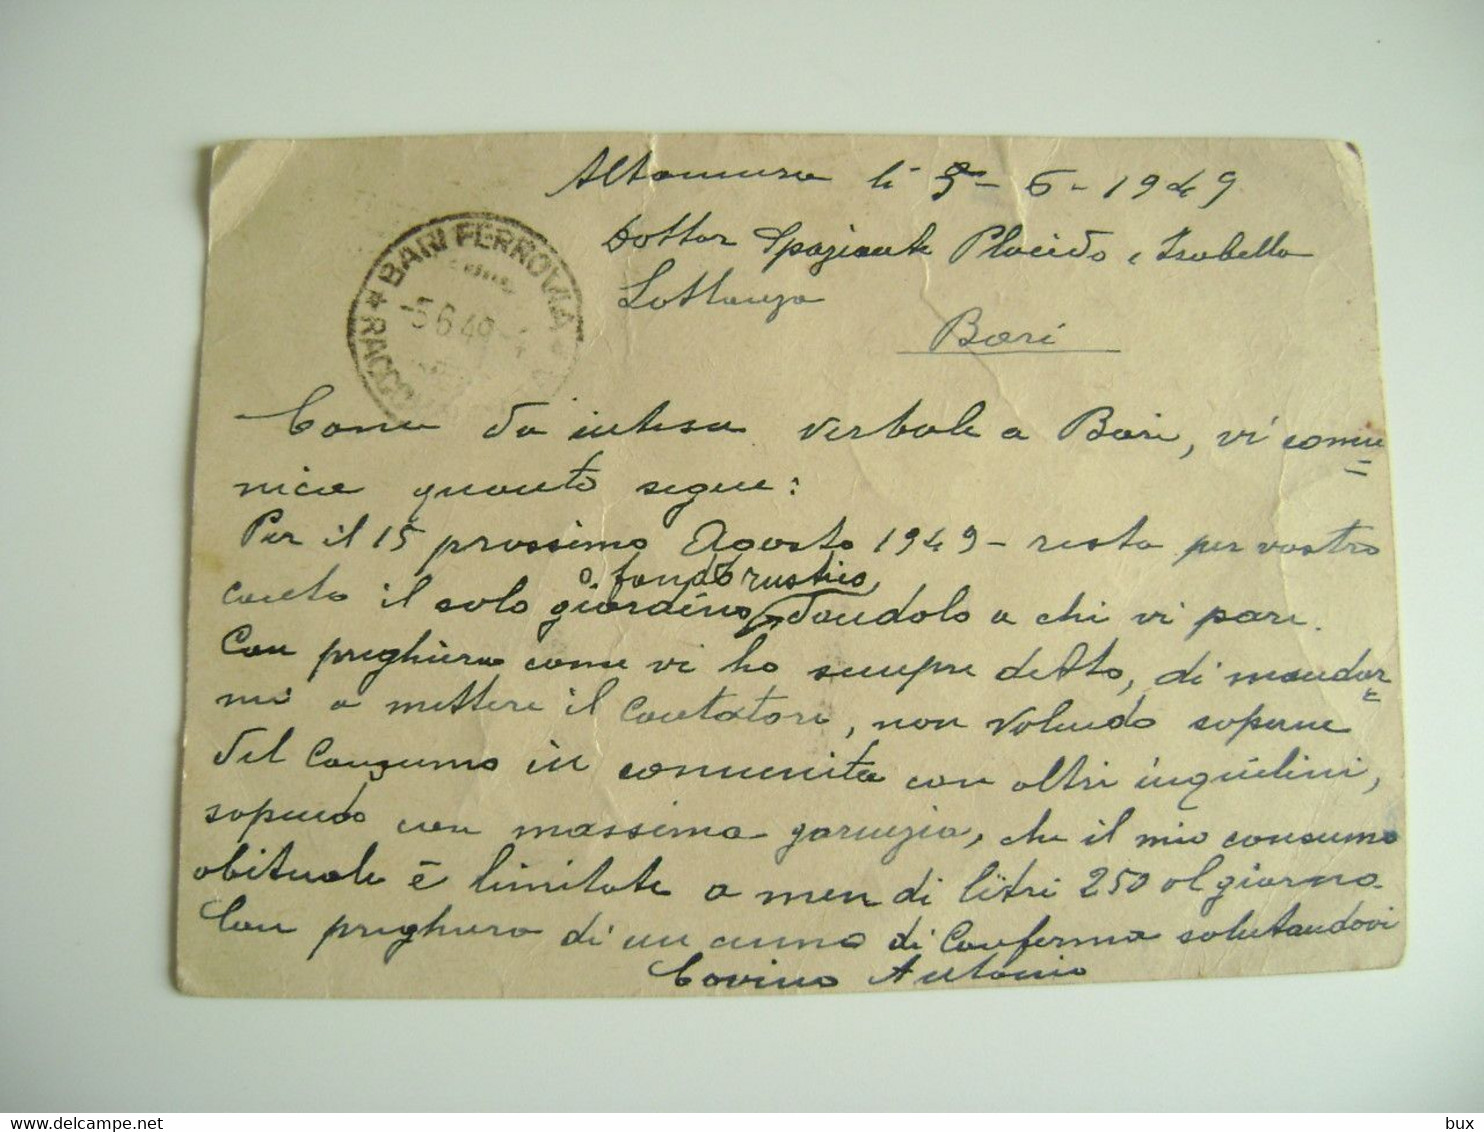 Altamura li 5-6-1949
BARI FERROVIA
-5.6.49
RACCO
Dottor Spaziante Placido e Isabella
Bari
Come da intesa verbale a Bari, vi comu=
nico quanto segue:
Per il 15 prossimo Agosto 1949 - resta per vostro
o fondo rustico,
conto il solo giardino dandolo a chi vi pare.
Con preghiera come vi ho sempre detto, di mandar=
mi a mettere il Contatore, non volendo saperne
del Consumo in comunita con altri inquilini,
sapendo con massima garnzia, che il mio consumo
abituale è limitate a men di litri 250 al giorno
Con preghiera di un cenno di Conferma salutandovi
Covino Antonio
delcampe.net
bux